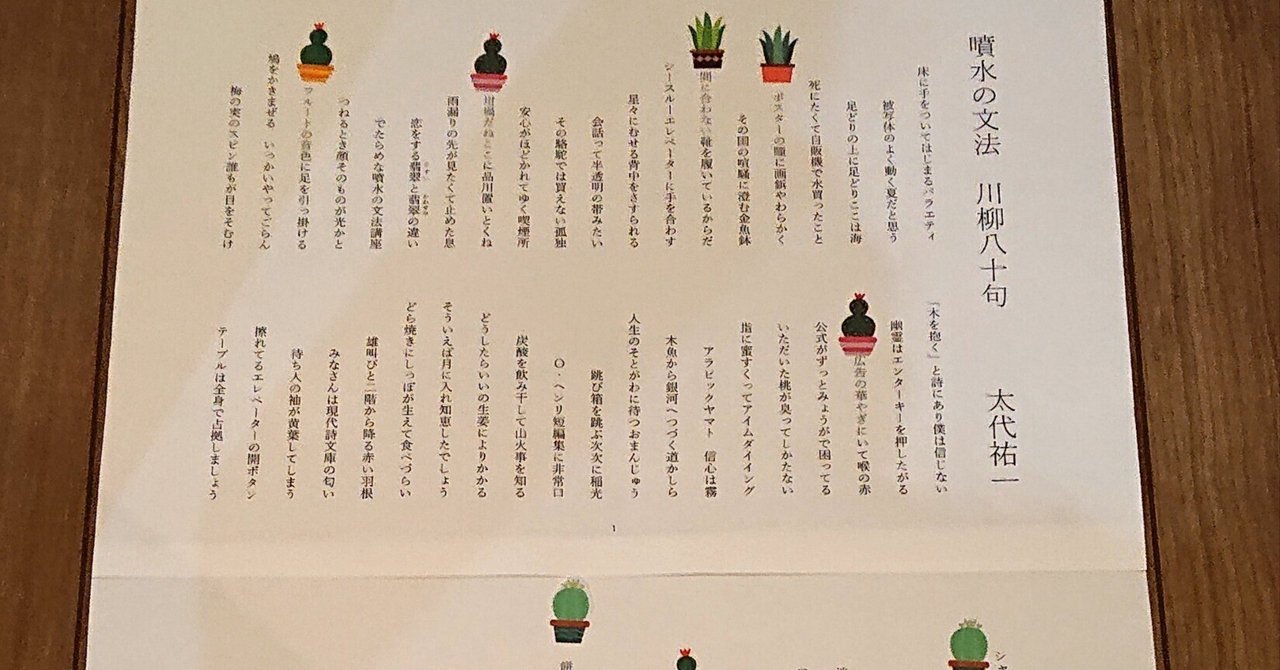 噴水の文法　川柳八十句　　太代祐一
床に手をついてはじまるバラエティ
被写体のよく動く夏だと思う
足どりの上に足どりここは海
死にたくて自販機で水買ったこと
ポスターの瞳に画鋲やわらかく
その国の喧騒に澄む金魚鉢
間に合わない靴を履いているからだ
シースルーエレベーターに手を合わす
星々にむせる背中をさすられる
会話って半透明の帯みたい
その駱駝では買えない孤独
安心がほどかれてゆく喫煙所
坩堝だねとこに品川置いとくね
雨漏りの先が見たくて止めた息
恋をする翡翠と翡翠の違い
でたらめな噴水の文法講座
つねるとき顔そのものが光かと
フルートの音色に足を引っ掛ける
鳩をかきまぜる　いっかいやってごらん
梅の実のスピン誰もが目をそむけ
「木を抱く」と詩にあり僕は信じない
幽霊はエンターキーを押したがる
広告の華やぎにいて喉の赤
公式がずっとみょうがで困ってる
いただいた桃が臭ってしかたない
指に蜜すくってアイムダイイング
アラビックヤマト　信心は霧
木魚から銀河へつづく道かしら
人生のそとがわに待つおまんじゅう
跳び箱を跳ぶ次次に稲光
О・ヘンリ短編集に非常口
炭酸を飲み干して山火事を知る
どうしたらいいの生姜によりかかる
そういえば月に入れ知恵したでしょう
どら焼きにしっぽが生えて食べづらい
雄叫びと二階から降る赤い羽根
みなさんは現代詩文庫の匂い
待ち人の袖が黄葉してしまう
擦れてるエレベーターの開ボタン
テーブルは全身で占拠しましょう
1
シャ
餅